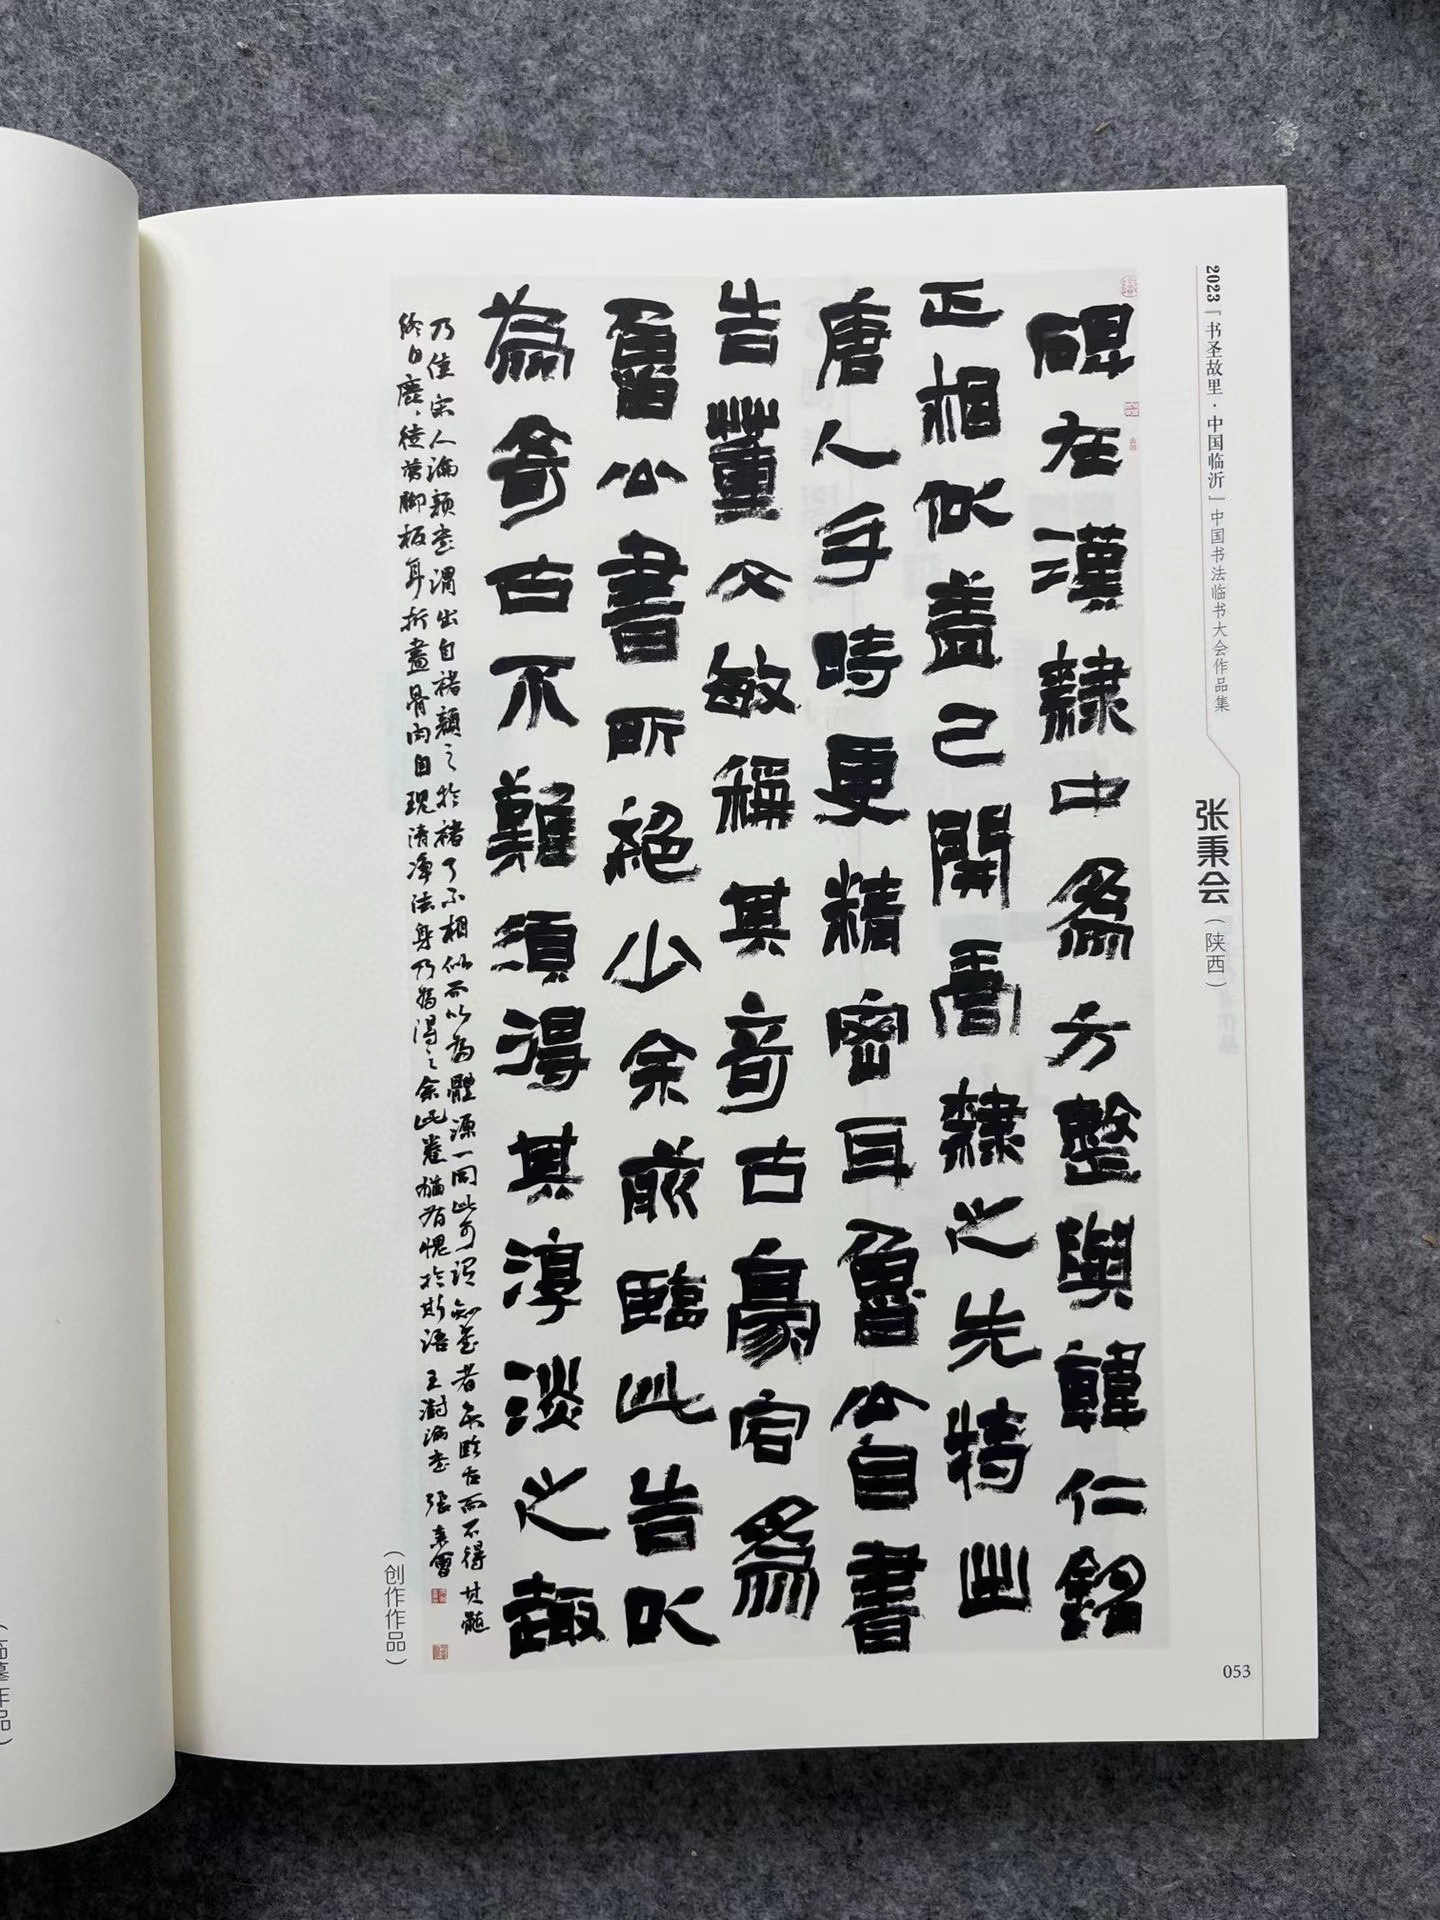 2023「书圣故里·中国临沂」中国书法临书大会作品集
张秉会(陕西)
碑在漢隸中為方整與韓仁銘
正相似盖已開唐隸之先特此
唐人手時更精密耳魯公自書
告董文敏稱其奇古豪宕為
魯公書所絕少余前臨此告以
為奇古不難須得其淳淡之趣
乃佳宋人論顏書謂出自褚顏之於褚了不相似而以為體源一同此可謂知書者矣臨古而不得其髓
終日鹿々徒費腳板耳折盡骨肉自現清淨法身乃為得之余此卷猶有愧於斯語王澍論書張秉會
(创作作品)
053